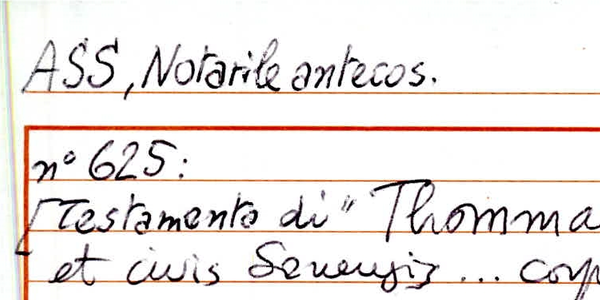 ASS, Notarile antecos.
n° 625:
[Testamento di "Thomma
et civis Senensis ... corp